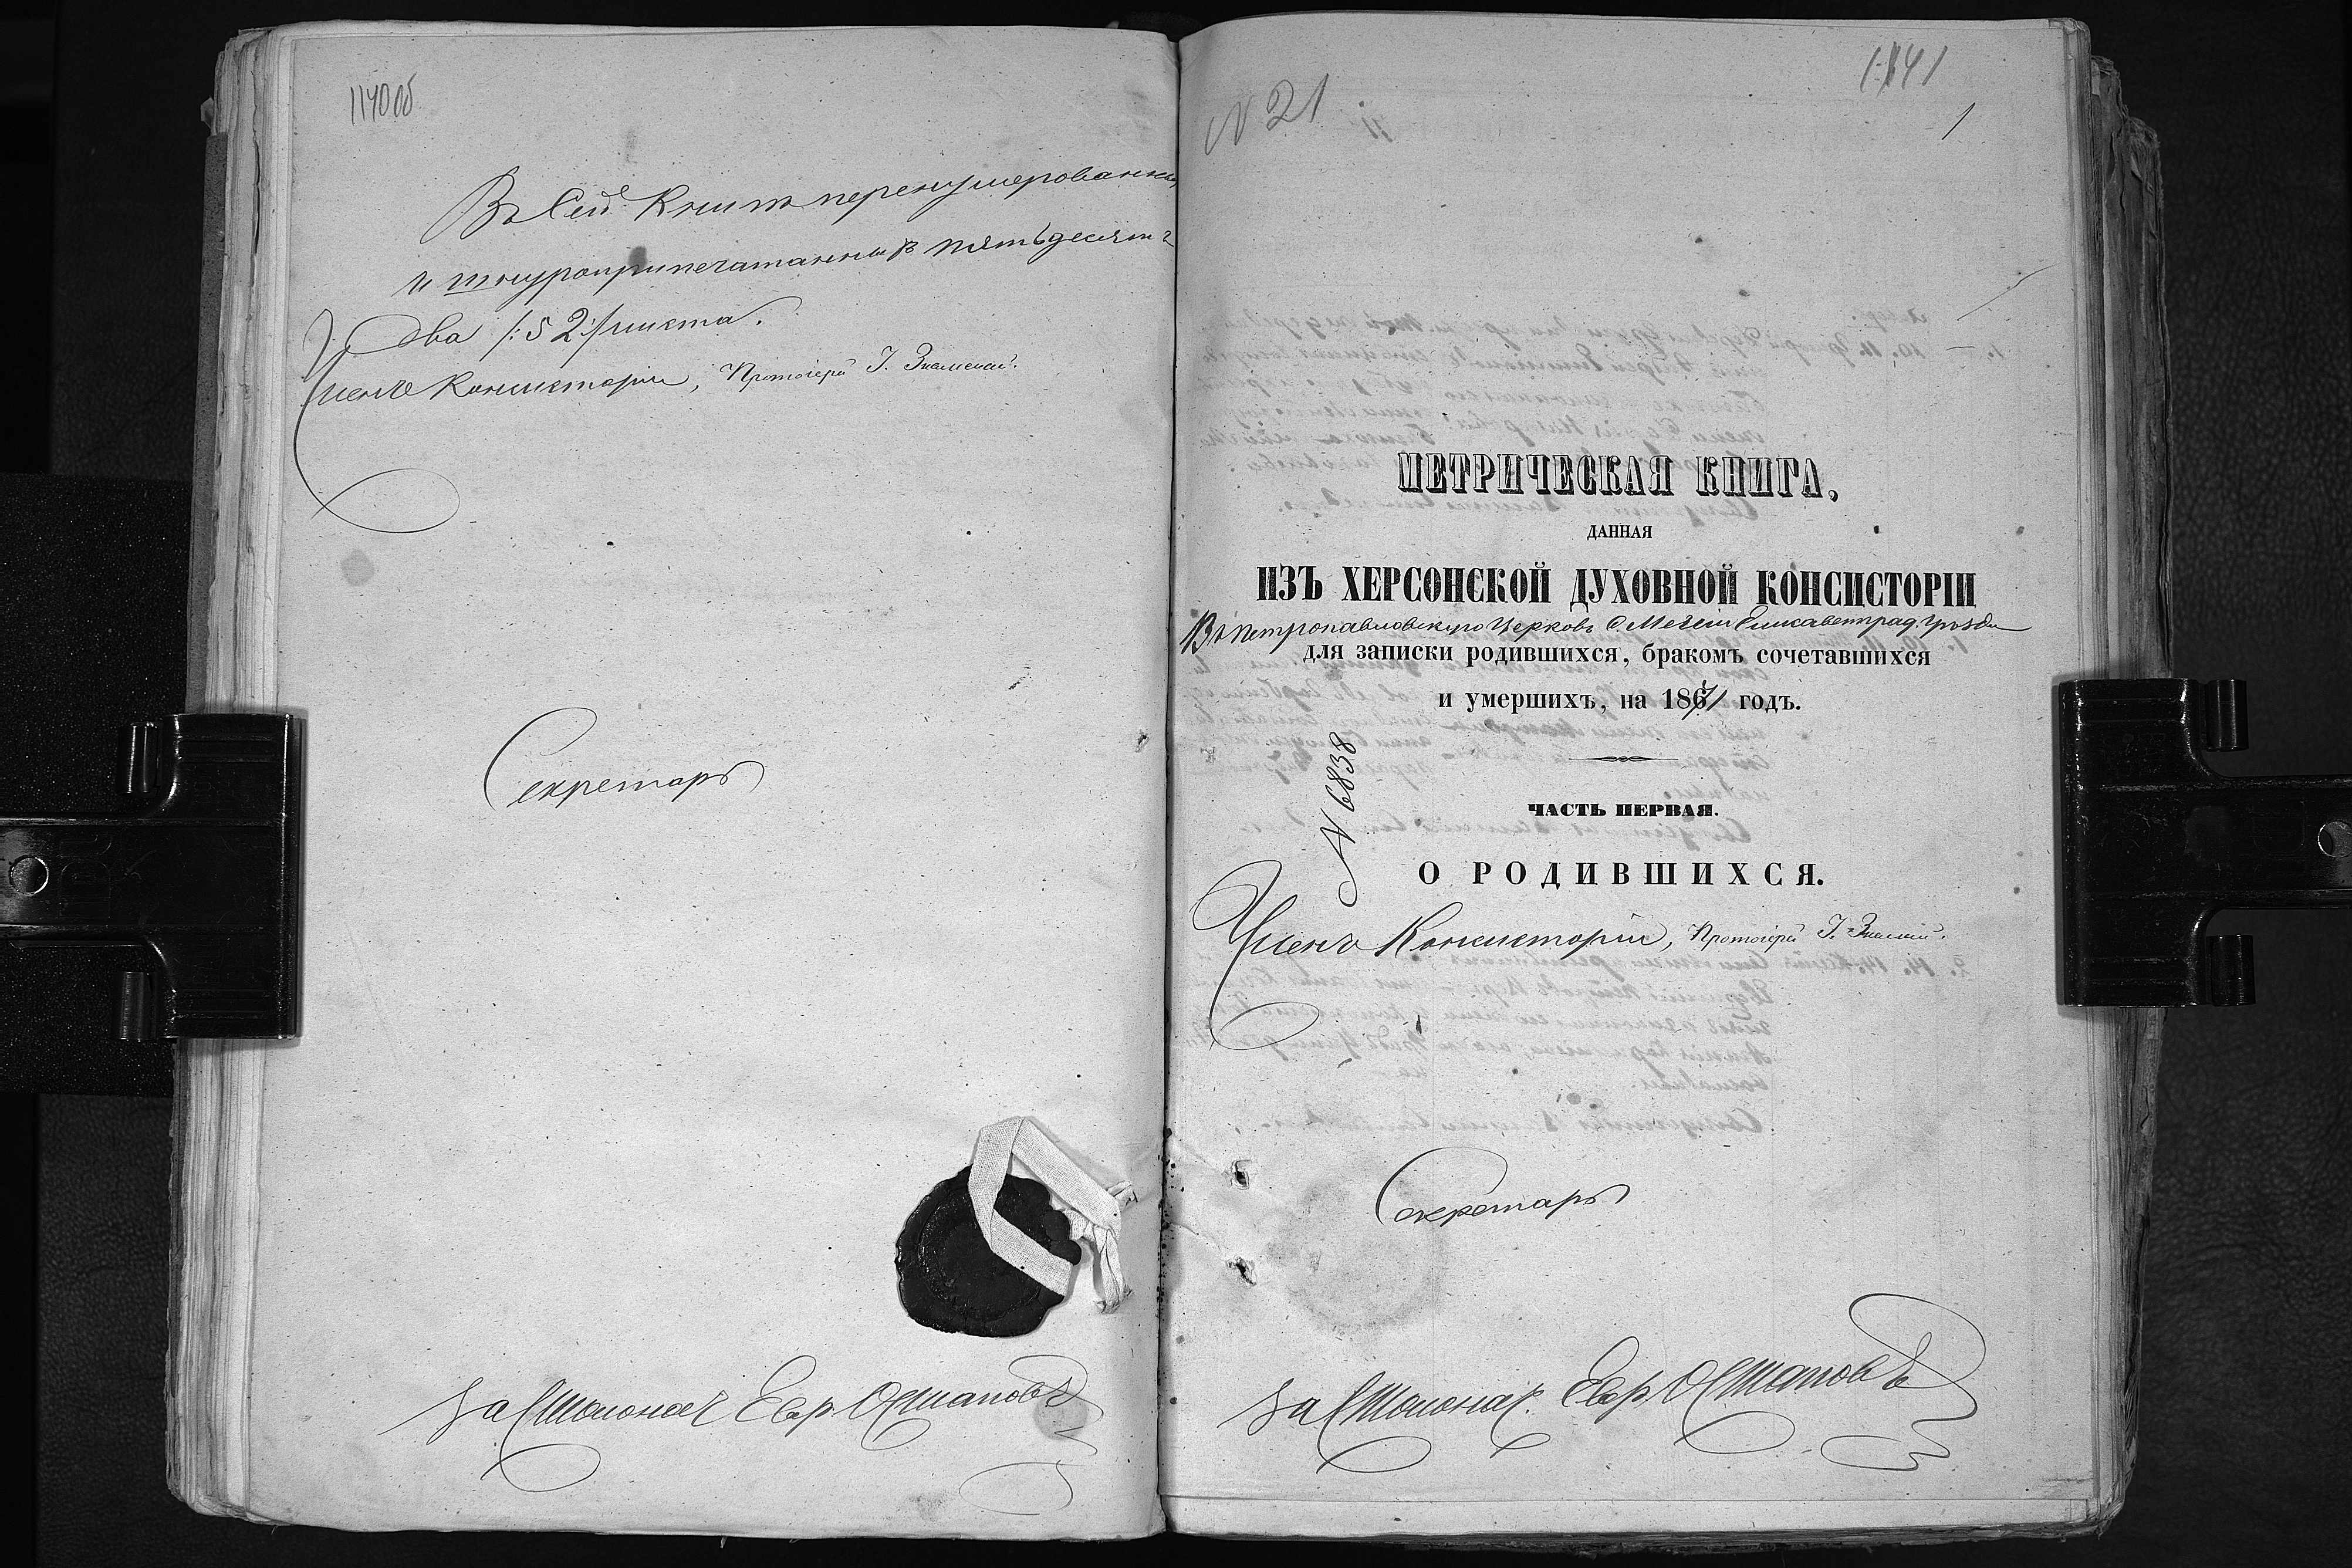 1140об
Въ сей книгѣ перенумерованныхъ
и шнуроприпечатанныхъ пятьдесятъ
два /:52:/ листа.
Членъ Консисторіи, Протоіерей І. Знаменскій.
Секретарь
За Столонач. Евгр. Остаповъ
N 21
1141
1
МЕТРИЧЕСКАЯ КНИГА,
ДАННАЯ
ИЗЪ ХЕРСОНСКОЙ ДУХОВНОЙ КОНСИСТОРІИ
Въ Петропавловскую Церковь С. Елисаветград. уѣзда
для записки родившихся, бракомъ сочетавшихся
и умершихъ, на 1871 годъ.
N 6838
ЧАСТЬ ПЕРВАЯ.
О РОДИВШИХСЯ.
Членъ Консисторіи, Протоіерей І. Знаменскій.
Секретарь
За Столонач. Евгр. Остаповъ